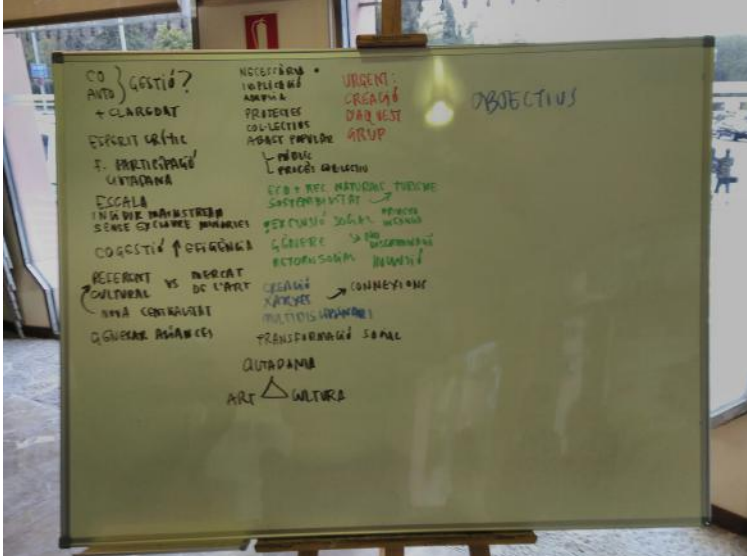 CO
AUTO } GESTIÓ?
+ CLAREDAT
ESPERIT CRÍTIC
F. PARTICIPACIÓ
CIUTADANA
ESCALA
INCIDIR MAINSTREAM
SENSE EXCLOURE MINORIES
COGESTIÓ ↑ EFICIÈNCIA
REFERENT VS MERCAT
CULTURAL DE L'ART
NOVA CENTRALITAT
GENERAR ALIANCES
NECESSÀRIA
IMPLICACIÓ
PROJECTES
COL·LECTIUS
ABAST POPULAR
PÚBLIC
PROCÉS COL·LECTIU
URGENT:
CREACIÓ
D'AQUEST
GRUP
ECO + REC. NATURALS TURISME
SOSTENIBILITAT
EXCLUSIÓ SOCIAL
GÈNERE → NO
DISCRIMINACIÓ
RETORN SOCIAL
CREACIÓ
XARXES → CONNEXIONS
MULTIDISCIPLINARI
TRANSFORMACIÓ SOCIAL
CIUTADANIA
ART CULTURA
OBJECTIUS